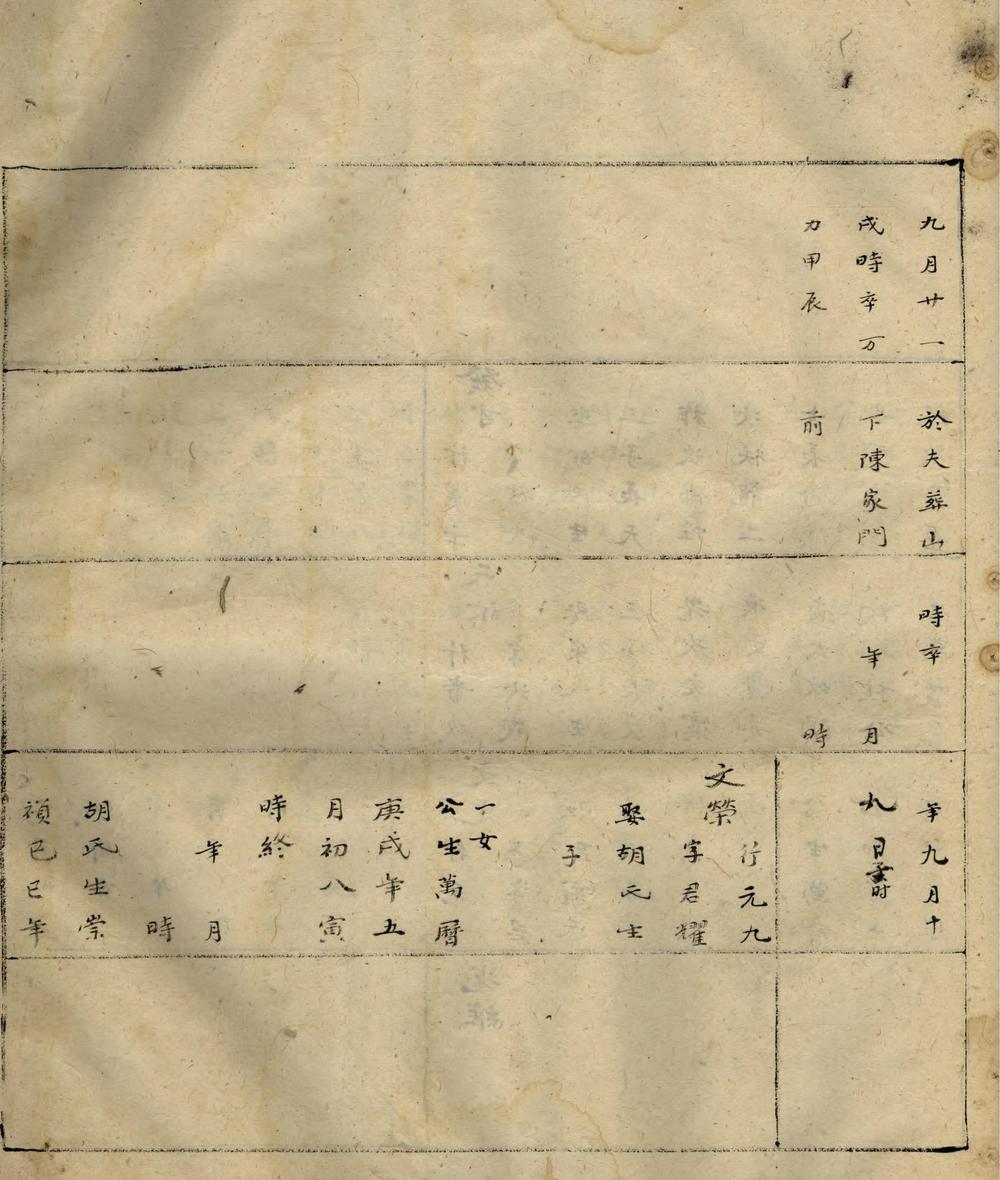 九月廿一
戌時卒万
力甲辰
於夫葬山
下陳家門
前
時卒
年月
時
年九月十
九日 時
行元九
文榮
字君耀
娶胡氏生
子
一女
公生萬曆
庚戌年五
月初八寅
時終
年月
時
胡氏生崇
禎己巳年